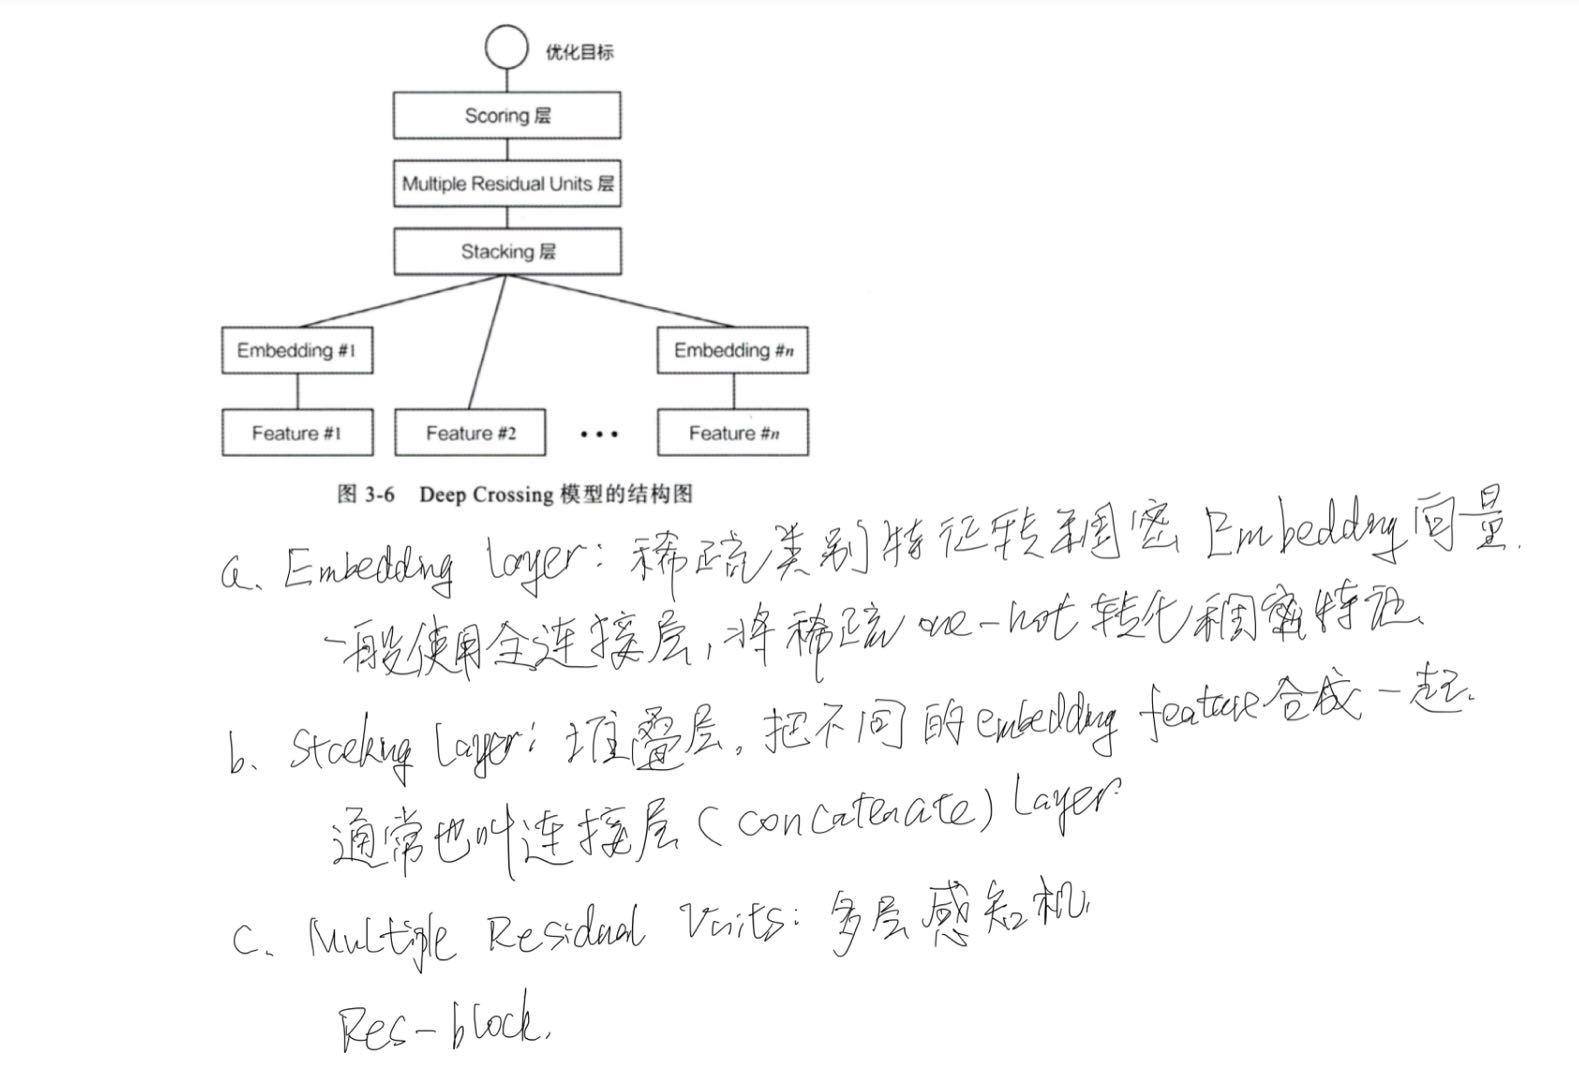 优化目标
Scoring 层
Multiple Residual Units 层
Stacking 层
Embedding #1
Embedding #n
Feature #1
Feature #2
...
Feature #n
图 3-6 Deep Crossing 模型的结构图
a、Embedding layer：稀疏类别特征转稠密 Embedding 向量.
一般使用全连接层，将稀疏 one-hot 转化稠密特征、
b、Stacking Layer：堆叠层，把不同的 embedding feature 合成一起.
通常也叫连接层（concatenate）Layer
c、Multiple Residual Units：多层感知机
Res-block.